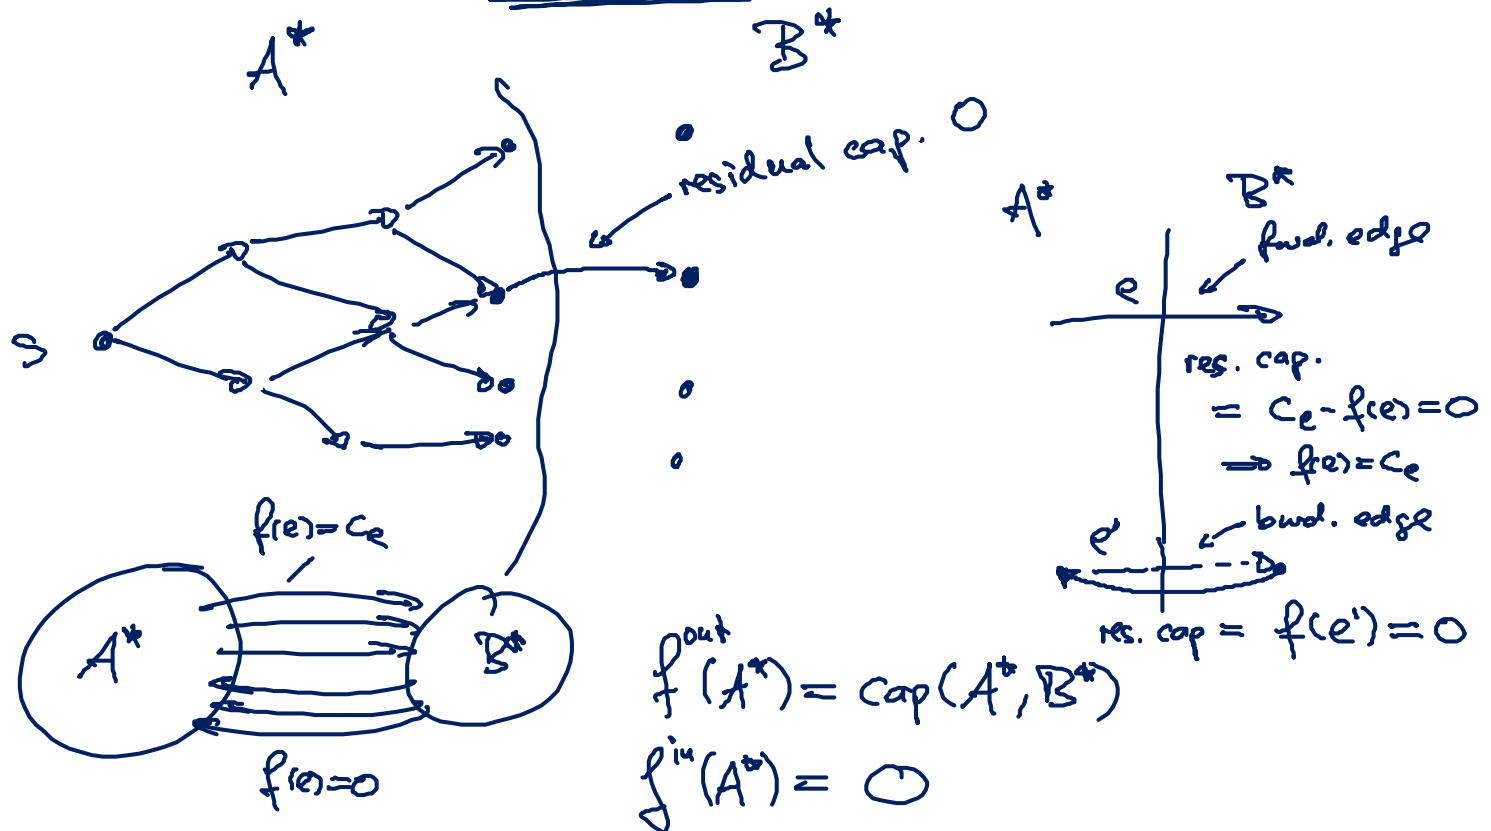 A* B*
residual cap. 0
A* B*
fwd. edge
e
S
res. cap.
= Ce - f(e) = 0
⇒ f(e) = Ce
f(e) = Ce
bwd. edge
e'
res. cap = f(e') = 0
A* B*
f^out(A*) = cap(A*, B*)
f(e) = 0
f^in(A*) = 0